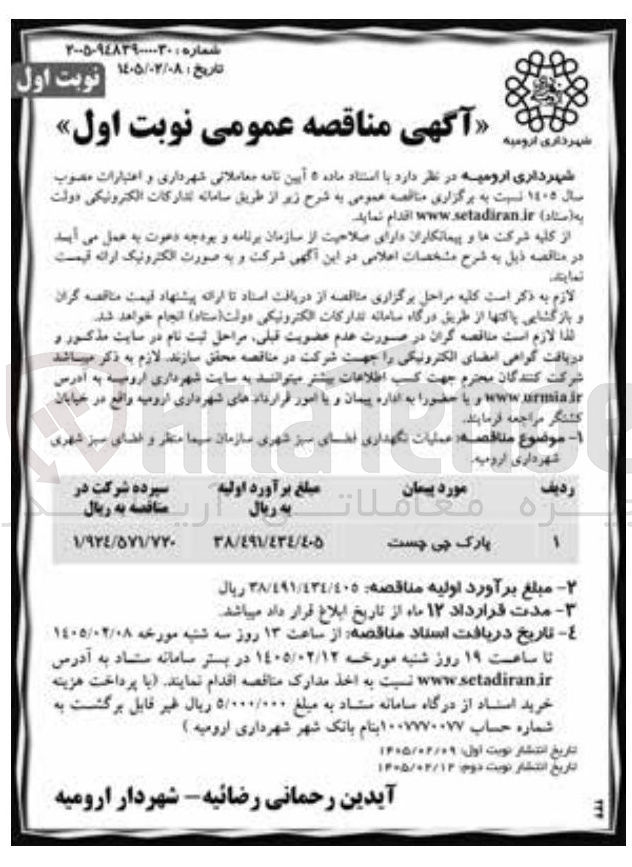 شماره: ۲۰۰۵۰۹۴۸۳۹۰۰۰۰۳۰
تاریخ: ۱۴۰۵/۰۲/۰۸
نوبت اول
شهرداری ارومیه
«آگهی مناقصه عمومی نوبت اول»
شهرداری ارومیـه در نظر دارد با استناد ماده ۵ آیین نامه معاملاتی شهرداری و اعتبارات مصوب
سال ۱۴۰۵ نسبت به برگزاری مناقصه عمومی به شرح زیر از طریق سامانه تدارکات الکترونیکی دولت
به(ستاد) www.setadiran.ir اقدام نماید.
از کلیه شرکت ها و پیمانکاران دارای صلاحیت از سازمان برنامه و بودجه دعوت به عمل می آیـد
در مناقصه ذیل به شرح مشخصات اعلامی در این آگهی شرکت و به صورت الکترونیک ارائه قیمت
نمایند.
لازم به ذکر است کلیه مراحل برگزاری مناقصه از دریافت اسناد تا ارائه پیشنهاد قیمت مناقصه گران
و بازگشایی پاکتها از طریق درگاه سامانه تدارکات الکترونیکی دولت(ستاد) انجام خواهد شد.
لذا لازم است مناقصه گران در صـورت عدم عضویت قبلی، مراحل ثبت نام در سایت مذکـور و
دریافت گواهی امضای الکترونیکی را جهـت شرکت در مناقصه محقق سازند. لازم به ذکر میباشد
شرکت کنندگان محترم جهت کسب اطلاعات بیشتر میتواننـد به سایت شهرداری ارومیـه به آدرس
www.urmia.ir و یا حضورا به اداره پیمان و یا امور قرارداد های شهرداری ارومیه واقع در خیابان
کشتگر مراجعه فرمایند.
۱- موضوع مناقصـه: عملیات نگهداری فضـای سبز شهری سازمان سیما منظر و فضای سبز شهری
شهرداری ارومیه.
ردیف مورد پیمان مبلغ برآورد اولیه به ریال سپرده شرکت در مناقصه به ریال
۱ پارک چی چست ۳۸/۴۹۱/۴۳۴/۴۰۵ ۱/۹۲۴/۵۷۱/۷۲۰
۲- مبلغ برآورد اولیه مناقصه: ۳۸/۴۹۱/۴۳۴/۴۰۵ ریال
۳- مدت قرارداد ۱۲ ماه از تاریخ ابلاغ قرار داد میباشد.
۴- تاریخ دریافت اسناد مناقصه: از ساعت ۱۳ روز سه شنبه مورخه ۱۴۰۵/۰۲/۰۸
تا ساعـت ۱۹ روز شنبه مورخـه ۱۴۰۵/۰۲/۱۲ در بستر سامانه ستـاد به آدرس
www.setadiran.ir نسبت به اخذ مدارک مناقصه اقدام نمایند. (با پرداخت هزینه
خرید اسنـاد از درگاه سامانه ستـاد به مبلغ ۵/۰۰۰/۰۰۰ ریال غیر قابل برگشـت به
شماره حساب ۱۰۰۷۷۷۰۰۷۷بنام بانک شهر شهرداری ارومیه )
تاریخ انتشار نوبت اول: ۱۴۰۵/۰۲/۰۹
تاریخ انتشار نوبت دوم: ۱۴۰۵/۰۲/۱۲
آیدین رحمانی رضائیه– شهردار ارومیه